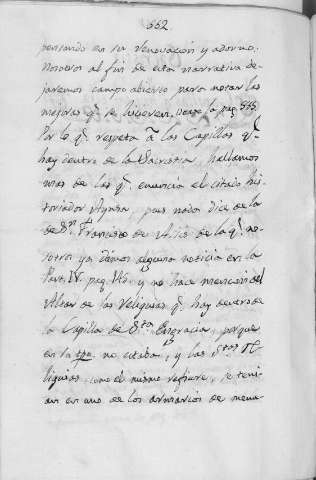 552.
pensando en su renovacion y adorno.
Nosotros al fin de esta narrativa de-
jaremos campo abierto para notar las
mejoras q.e se hicieren. Vease la pag. 555
Por lo q.e respeta â las Capillas q.e
hay dentro de la Sacristia, hallamos
mas de las q.e enuncia el citado his-
toriador Aynsa, pues nada dice de la
de S.n Francisco de Asis de la q.e no-
sotros ya dimos alguna noticia en la
Part. IV. pag. 140. y no hace mencion del
Altar de las Reliquias q.e hay dentro de
la Capilla de S.ta Engracia, porque
en su tpo. no estaba, y las S.tas Re-
liquias, como el mismo refiere, se teni-
an en uno de los armarios de mena-